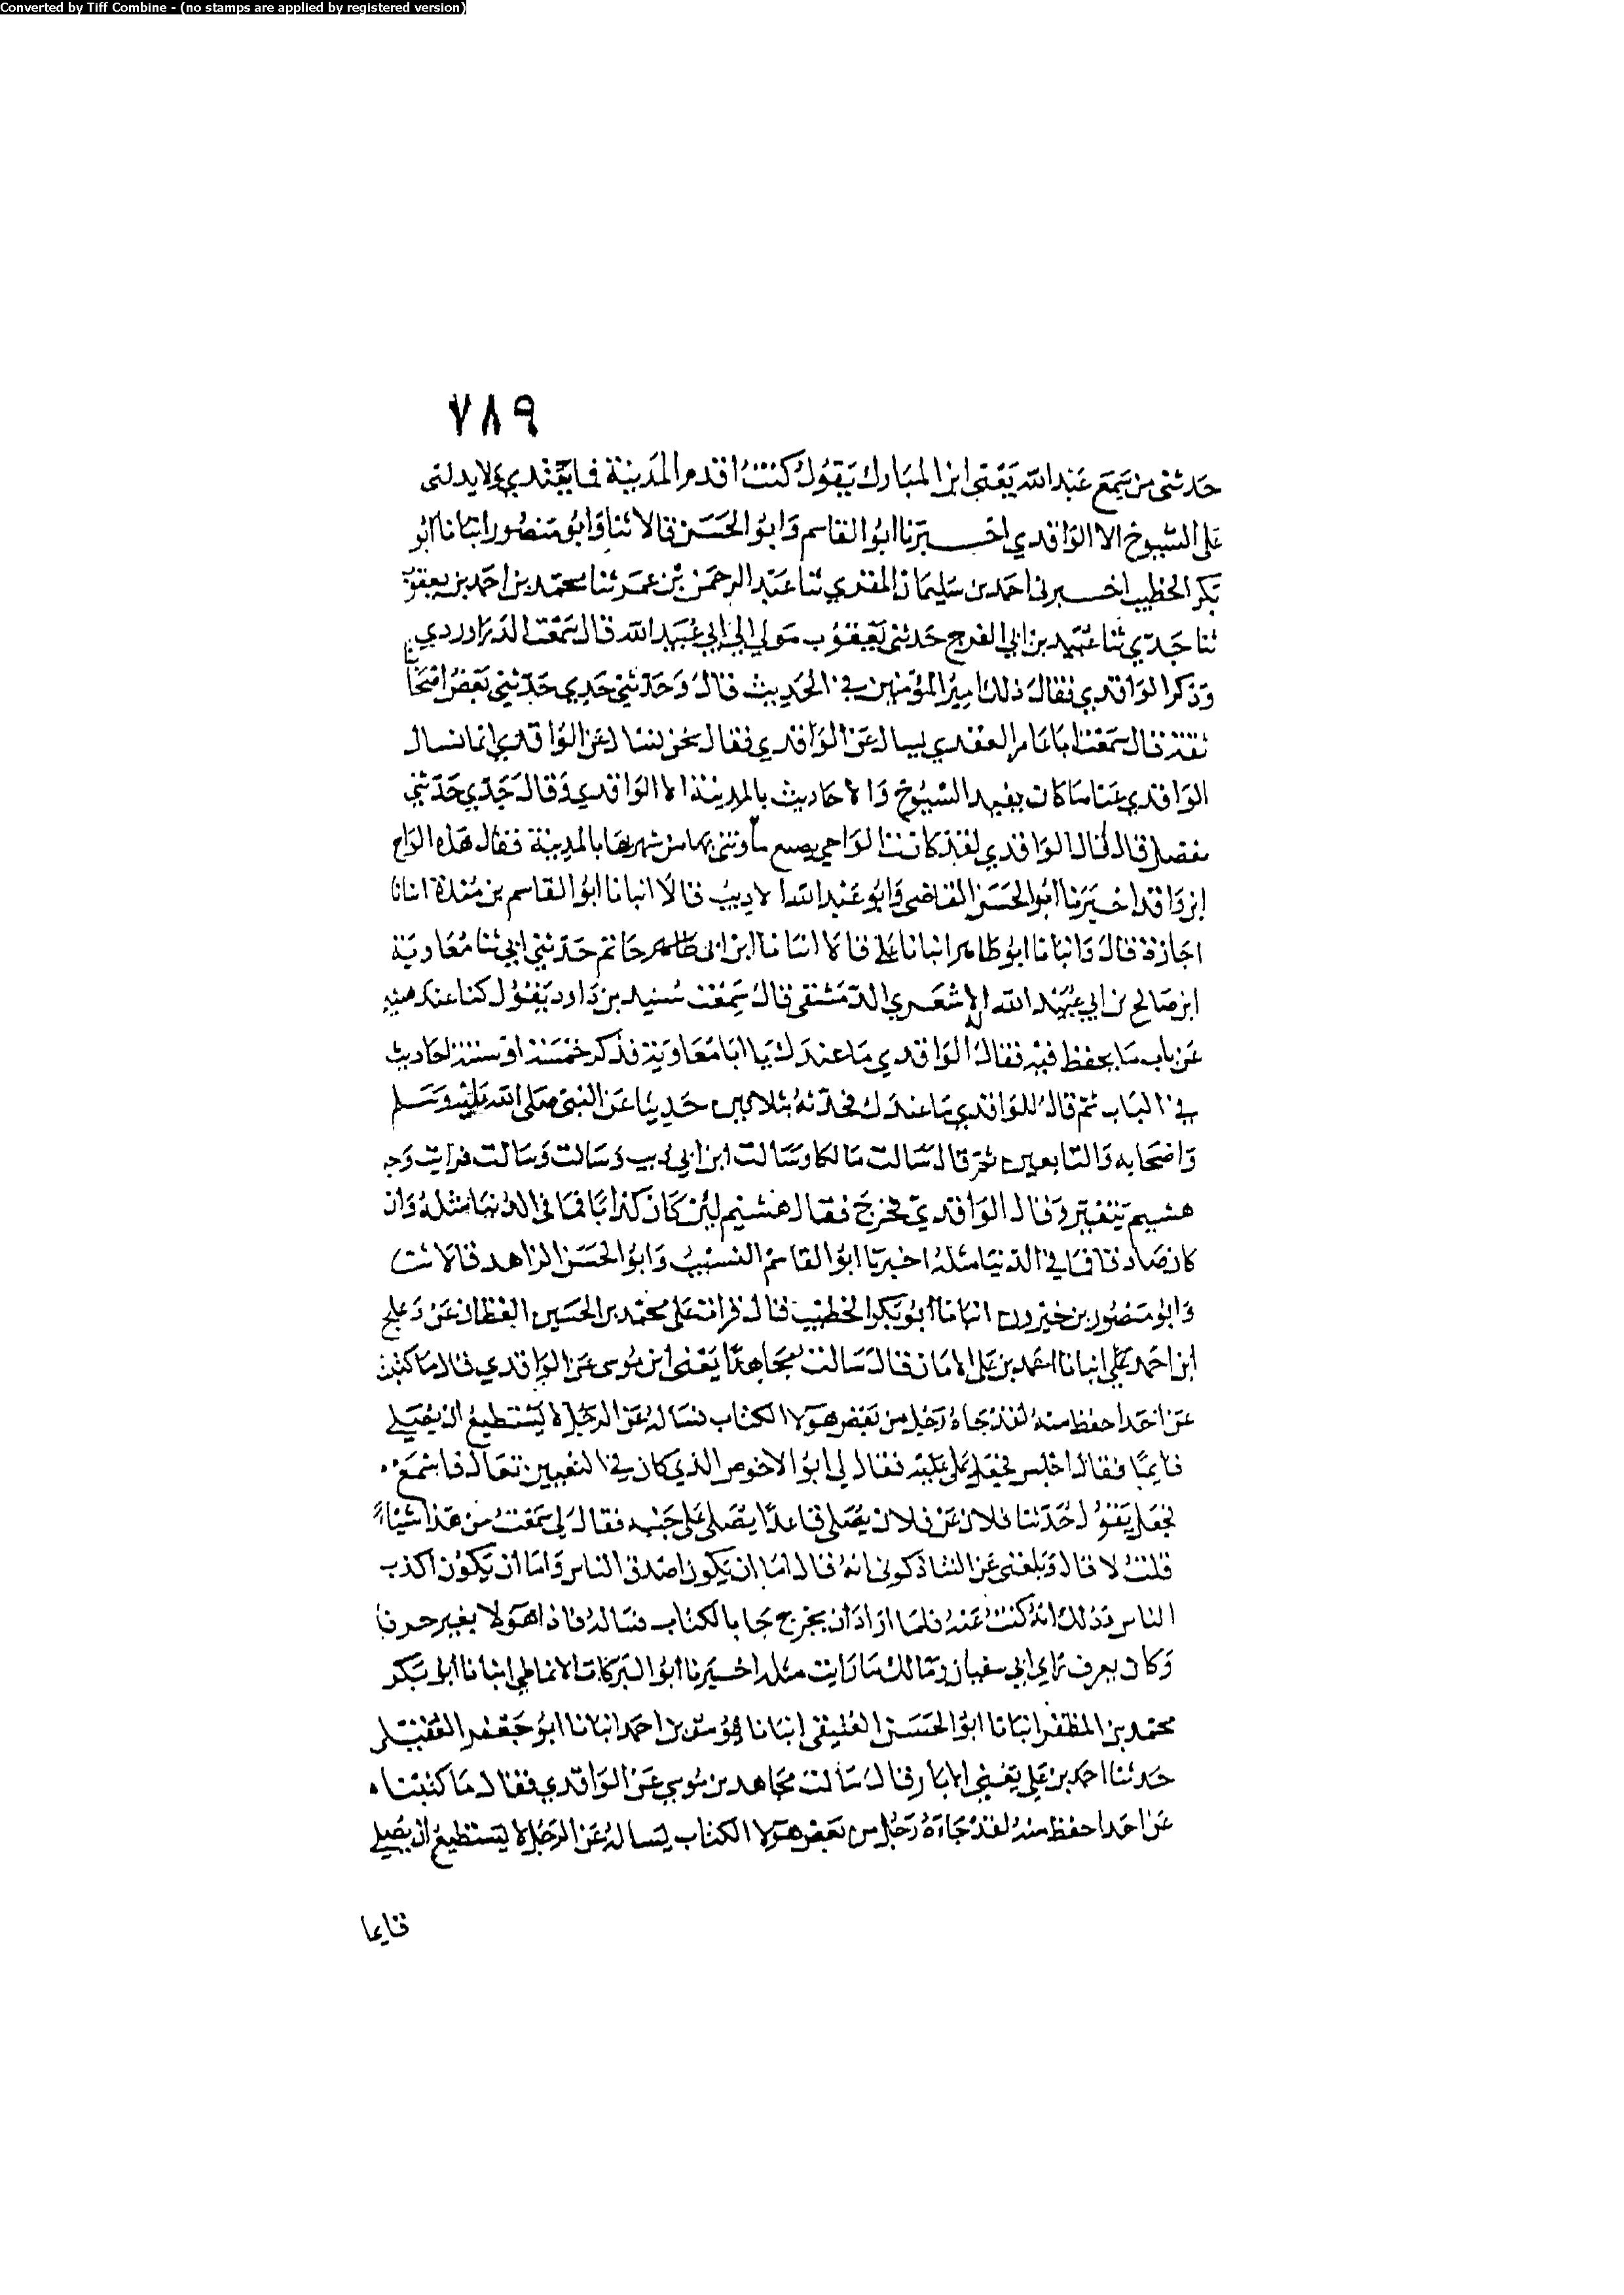 Converted by Tiff Combine - (no stamps are applied by registered version)
٧٨٩
حدثني من سمع عبد الله يعني ابن المبارك يقول كنت اقدم المدينة فما يفيدني ولا يدلني
على الشيوخ الا الواقدي اخبرنا ابو القاسم وابو الحسن قالا ثنا وابو منصور انبانا ابو
بكر الخطيب اخبرني احمد بن سليمان المقري ثنا عبد الرحمن بن عمر ثنا محمد بن احمد بن يعقوب
ثنا جدي ثنا عبيد بن ابي الفرج حدثني يعقوب مولى ال ابي عبيد الله قال سمعت الدراوردي
وذكر الواقدي فقال ذلك امير المؤمنين في الحديث قال وحدثني جدي حدثني بعض اصحابنا
ثقة قال سمعت ابا عامر العقدي يسال عن الواقدي فقال نحن نسال عن الواقدي انما نسال
الواقدي عنا ما كان يفيد الشيوخ والاحاديث بالمدينة الا الواقدي وقال جدي حدثني
مفضل قال قال الواقدي لقد كانت الواحي يضيع فاوتى بها من شهرتها بالمدينة فقال هذه الواح
ابن واقد اخبرنا ابو الحسن القاضي وابو عبد الله الاديب قالا انبانا ابو القاسم بن مندة انبانا
اجازة قال وانبانا ابو طاهر انبانا علي قالا انبانا ابن ابي حاتم حدثني ابي ثنا معاوية
ابن صالح بن ابي عبيد الله الاشعري الدمشقي قال سمعت سنيد بن داود يقول كنا عند هشيم
عن باب ما يحفظ فيه فقال الواقدي ما عندك يا ابا معاوية فذكر خمسة او ستة احاديث
في الباب ثم قال للواقدي ما عندك فحدثه بثلاثين حديثا عن النبي صلى الله عليه وسلم
واصحابه والتابعين ثم قال سالت مالكا وسالت ابن ابي ذيب وسالت وسالت فرايت وجه
هشيم يتغير وقال الواقدي فخرج فقال هشيم لئن كان كذابا فما في الدنيا مثله وان
كان صادقا فما في الدنيا مثله اخبرنا ابو القاسم النسيب وابو الحسن الزاهد قالا ثنا
وابو منصور بن خيرون انبانا ابو بكر الخطيب قال قرات على محمد بن الحسين القطان عن دعلج
ابن احمد انبانا احمد بن علي الابار قال سالت مجاهدا يعني ابن موسى عن الواقدي قال ما كتبت
عن احد احفظ منه لقد جاه رجل من بعض هولا الكتاب فساله عن الرجل لا يستطيع ان يصلي
قايما فقال اجلس فجعل يملي عليه فقال لي ابو الاحوص الذي كان في البغيين تعال فاسمع
فجعل يقول حدثنا فلان عن فلان يصلي قاعدا يصلي على جنبه فقال لي سمعت من هذا شيئا
قلت لا قال وبلغني عن الشاذكوني انه قال اما ان يكون اصدق الناس واما ان يكون اكذب
الناس وذلك انه كتب عنه فلما اراد ان يخرج جا بالكتاب فساله فاذا هو لا يغير حرفا
وكان يعرف راي ابي سفيان ومالك ما رايت مثله اخبرنا ابو البركات الانماطي انبانا ابو بكر
محمد بن المظفر انبانا ابو الحسن العتيقي انبانا يوسف بن احمد انبانا ابو جعفر العقيلي
حدثنا احمد بن علي يعني الابار قال سالت مجاهد بن موسى عن الواقدي فقال ما كتبنا
عن احد احفظ منه لقد جاءه رجل من بعض هولا الكتاب ليساله عن الرجل لا يستطيع ان يصلي
قايما